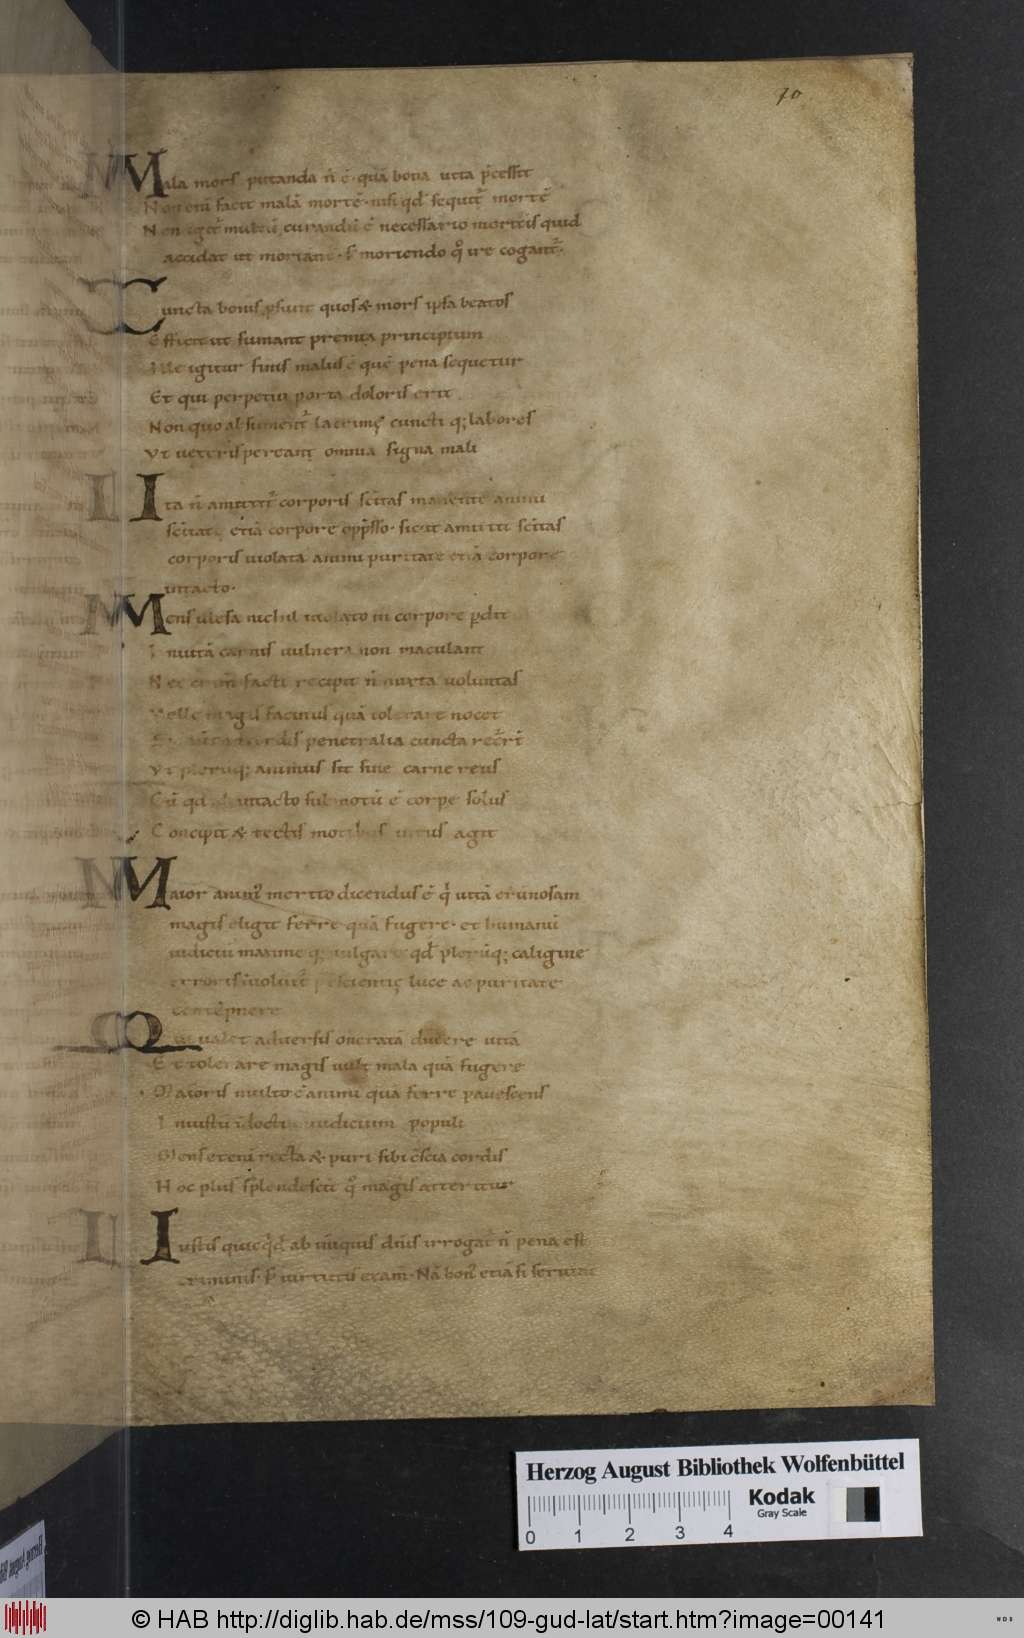 70
Mala mors putanda n̄ ē· quā bona uita p̄cessit
Non eni facit malā mortē· nisi qd̄ sequit᷑ mortē
Non igit᷑ multū curandū ē necessario morituris quid
accidat ut moriant᷑· s; moriendo q̊ ire cogant᷑·
Cuncta bonis p̱sunt quos & mors ipsa beatos
Efficit ut sumant premia principium
Ille igitur finis malus ē quē pena sequetur
Et qui perpetui porta doloris erit
Non quo absument᷑ lacrimę cuncti q; labores
Vt ueteris pereant omnia signa mali
Ita n̄ amittit᷑ corporis sc̄itas manente animi
sc̄itate etiā corpore opp̄sso· sic & amittit᷑ sc̄itas
corporis uiolata animi puritate etiā corpore
intacto·
Mens illesa nichil uiolato in corpore p̱dit
Inuitā carnis uulnera non maculant
Nec crim̄ facti recipit n̄ iuxta uoluntas
Velle magis facinus quā tolerare nocet
penetralia cuncta rec̄rit
Vt pleruq; animus sit sine carne reus
Cū qd̄ intacto submotū ē corpe solus
Concipit & tectis motibus intus agit
Maior animi᷒ merito dicendus ē q̇ uitā erūnosam
magis eligit ferre quā fugere· et humanū
iudiciū maxime q; uulgare qd̄ plerūq; caligine
erroris inuoluit᷑ p̄ scientię luce ac puritate
contēpnere
Qui ualet aduersis oneratā ducere uitā
Et tolerare magis uult mala quā fugere
Maioris multo ē animi quā ferre pauescens
Iniustū īdocti iudicium populi
Mens eteni recta & puri sibi c̄scia cordis
Hoc plus sp̄lendescit q̊ magis atteritur
Iustis quicq̇d ab iniquis dn̄is irrogat᷑ n̄ pena est
criminis· s; uirtutis exam̄· Nā bon᷒ etiā si seruiat
Herzog August Bibliothek Wolfenbüttel
Kodak
Gray Scale
0 1 2 3 4
© HAB http://diglib.hab.de/mss/109-gud-lat/start.htm?image=00141